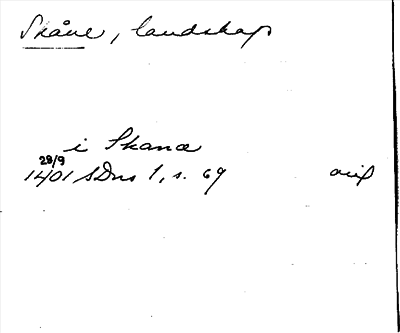 Skåne, landskap
i Skanæ
28/9
1401 SDns 1, s. 69 avifl